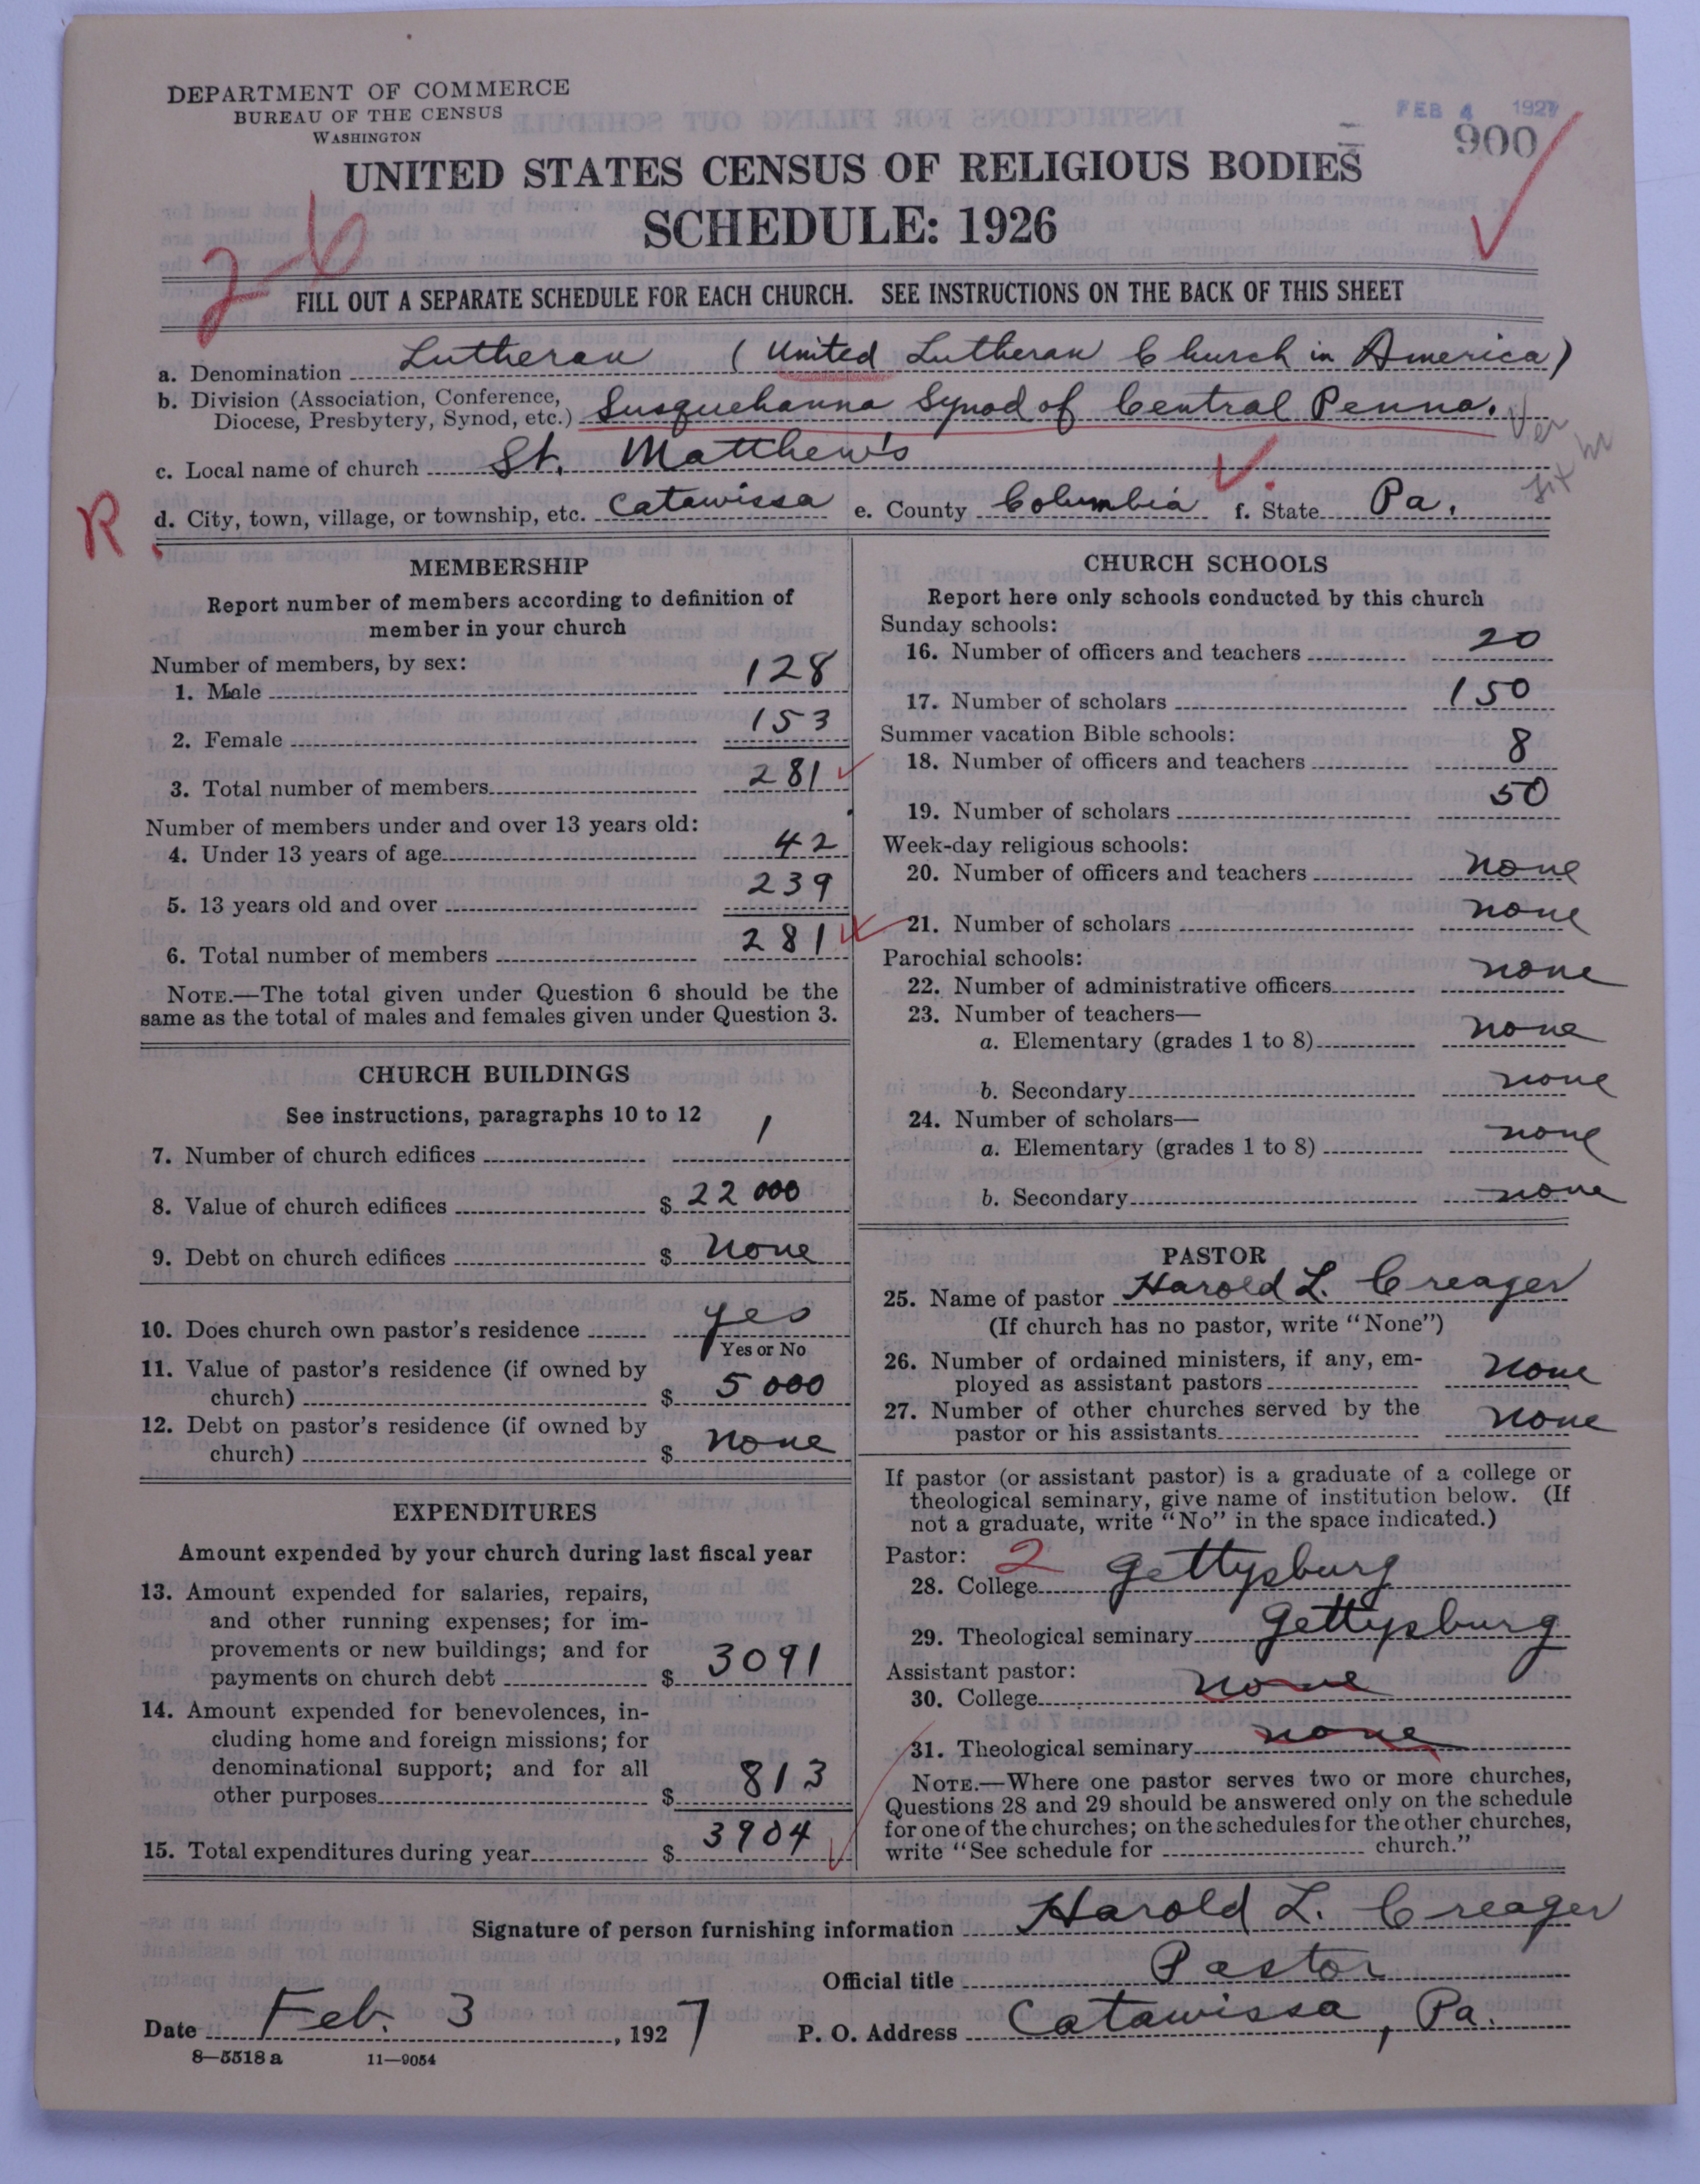 DEPARTMENT OF COMMERCE
BUREAU OF THE CENSUS
WASHINGTON
FEB 4 1927
900
UNITED STATES CENSUS OF RELIGIOUS BODIES
SCHEDULE: 1926
26
FILL OUT A SEPARATE SCHEDULE FOR EACH CHURCH. SEE INSTRUCTIONS ON THE BACK OF THIS SHEET
a. Denomination Lutheran (United Lutheran Church in America)
b. Division (Association, Conference,
Diocese, Presbytery, Synod, etc.) Susquehanna Synod of Central Penna.
c. Local name of church St. Matthew's
R
d. City, town, village, or township, etc. Catawissa e. County Columbia f. State Pa.
MEMBERSHIP
Report number of members according to definition of
member in your church
Number of members, by sex:
1. Male 128
2. Female 153
3. Total number of members 281
Number of members under and over 13 years old:
4. Under 13 years of age 42
5. 13 years old and over 239
6. Total number of members 281
NOTE.—The total given under Question 6 should be the
same as the total of males and females given under Question 3.
CHURCH BUILDINGS
See instructions, paragraphs 10 to 12
7. Number of church edifices 1
8. Value of church edifices $ 22 000
9. Debt on church edifices $ None
10. Does church own pastor's residence yes
Yes or No
11. Value of pastor's residence (if owned by
church) $ 5 000
12. Debt on pastor's residence (if owned by
church) $ none
EXPENDITURES
Amount expended by your church during last fiscal year
13. Amount expended for salaries, repairs,
and other running expenses; for im-
provements or new buildings; and for
payments on church debt $ 3091
14. Amount expended for benevolences, in-
cluding home and foreign missions; for
denominational support; and for all
other purposes $ 813
15. Total expenditures during year $ 3904
CHURCH SCHOOLS
Report here only schools conducted by this church
Sunday schools:
16. Number of officers and teachers 20
17. Number of scholars 150
Summer vacation Bible schools:
18. Number of officers and teachers 8
19. Number of scholars 50
Week-day religious schools:
20. Number of officers and teachers none
21. Number of scholars none
Parochial schools:
22. Number of administrative officers none
23. Number of teachers—
a. Elementary (grades 1 to 8) none
b. Secondary none
24. Number of scholars—
a. Elementary (grades 1 to 8) none
b. Secondary none
PASTOR
25. Name of pastor Harold L. Creager
(If church has no pastor, write "None")
26. Number of ordained ministers, if any, em-
ployed as assistant pastors none
27. Number of other churches served by the
pastor or his assistants none
If pastor (or assistant pastor) is a graduate of a college or
theological seminary, give name of institution below. (If
not a graduate, write "No" in the space indicated.)
Pastor: 2
28. College Gettysburg
29. Theological seminary Gettysburg
Assistant pastor:
30. College none
31. Theological seminary none
NOTE.—Where one pastor serves two or more churches,
Questions 28 and 29 should be answered only on the schedule
for one of the churches; on the schedules for the other churches,
write "See schedule for church."
Signature of person furnishing information Harold L. Creager
Official title Pastor
Date Feb. 3, 1927 P. O. Address Catawissa, Pa.
8—5518 a 11—9054